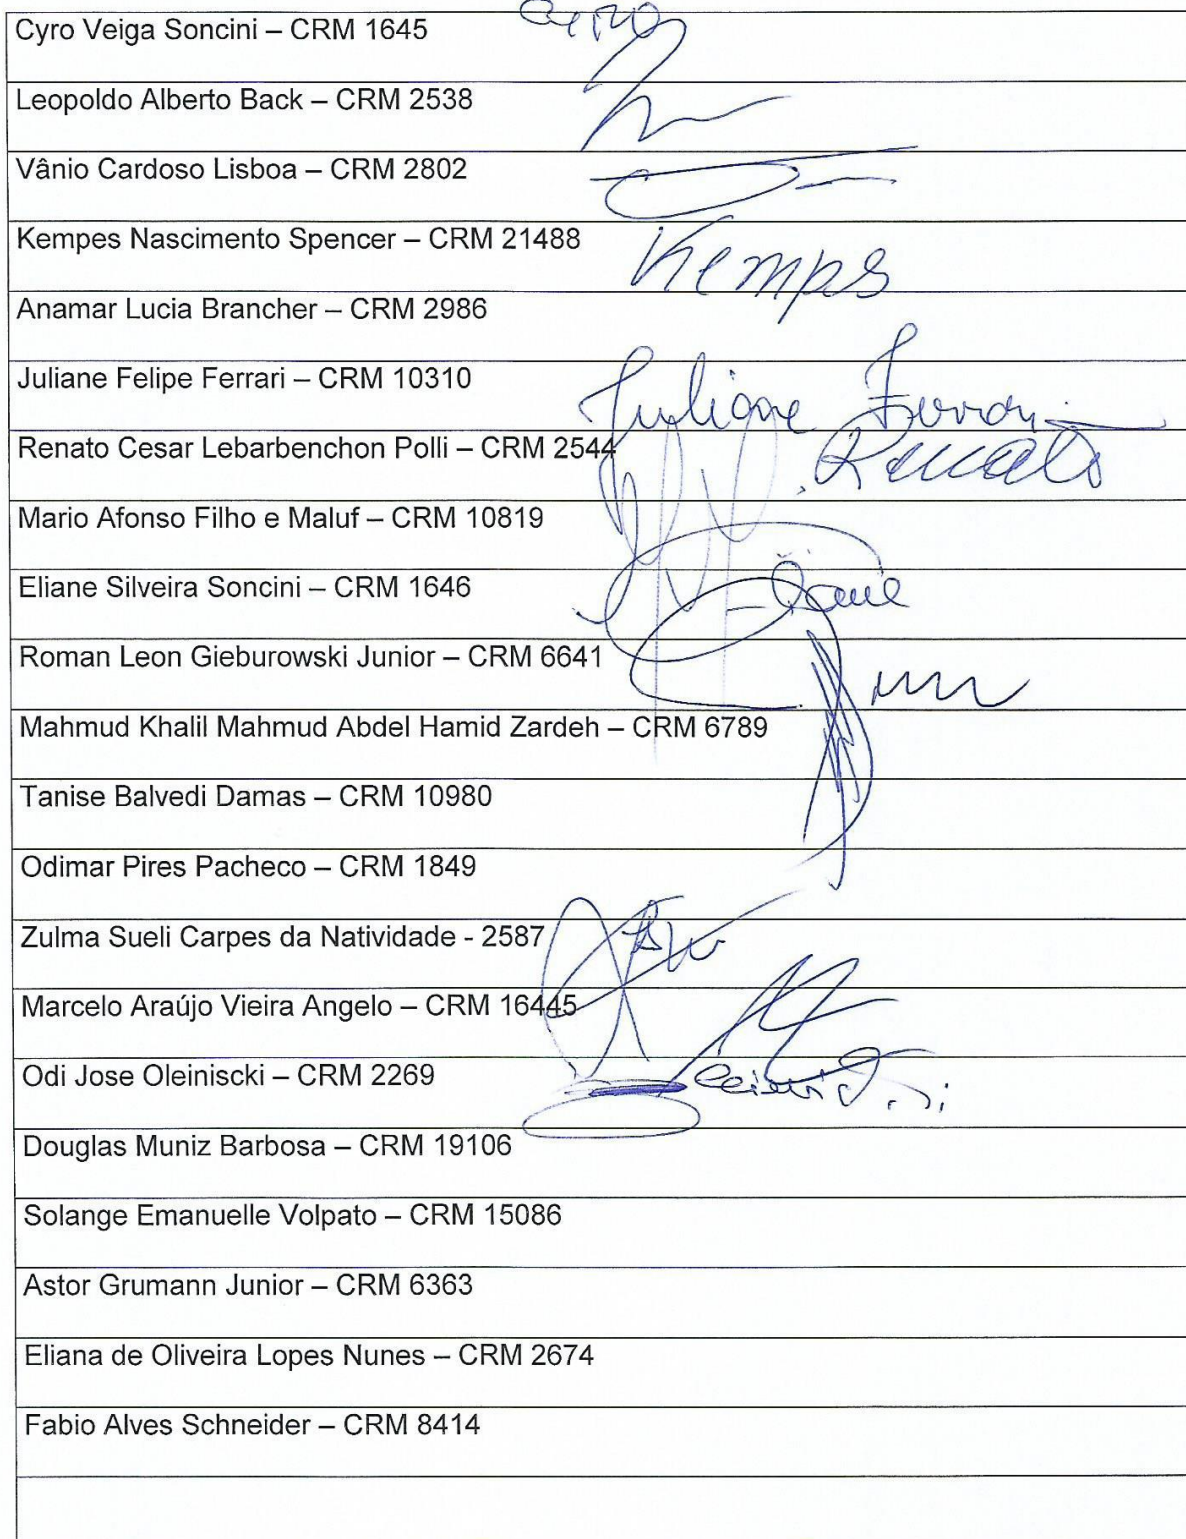 Cyro Veiga Soncini – CRM 1645
Leopoldo Alberto Back – CRM 2538
Vânio Cardoso Lisboa – CRM 2802
Kempes Nascimento Spencer – CRM 21488
Kemps
Anamar Lucia Brancher – CRM 2986
Juliane Felipe Ferrari – CRM 10310
Juliane Ferrari
Renato Cesar Lebarbenchon Polli – CRM 2544
Renato
Mario Afonso Filho e Maluf – CRM 10819
Eliane Silveira Soncini – CRM 1646
Roman Leon Gieburowski Junior – CRM 6641
Mahmud Khalil Mahmud Abdel Hamid Zardeh – CRM 6789
Tanise Balvedi Damas – CRM 10980
Odimar Pires Pacheco – CRM 1849
Zulma Sueli Carpes da Natividade - 2587
Marcelo Araújo Vieira Angelo – CRM 16445
Odi Jose Oleiniscki – CRM 2269
Douglas Muniz Barbosa – CRM 19106
Solange Emanuelle Volpato – CRM 15086
Astor Grumann Junior – CRM 6363
Eliana de Oliveira Lopes Nunes – CRM 2674
Fabio Alves Schneider – CRM 8414